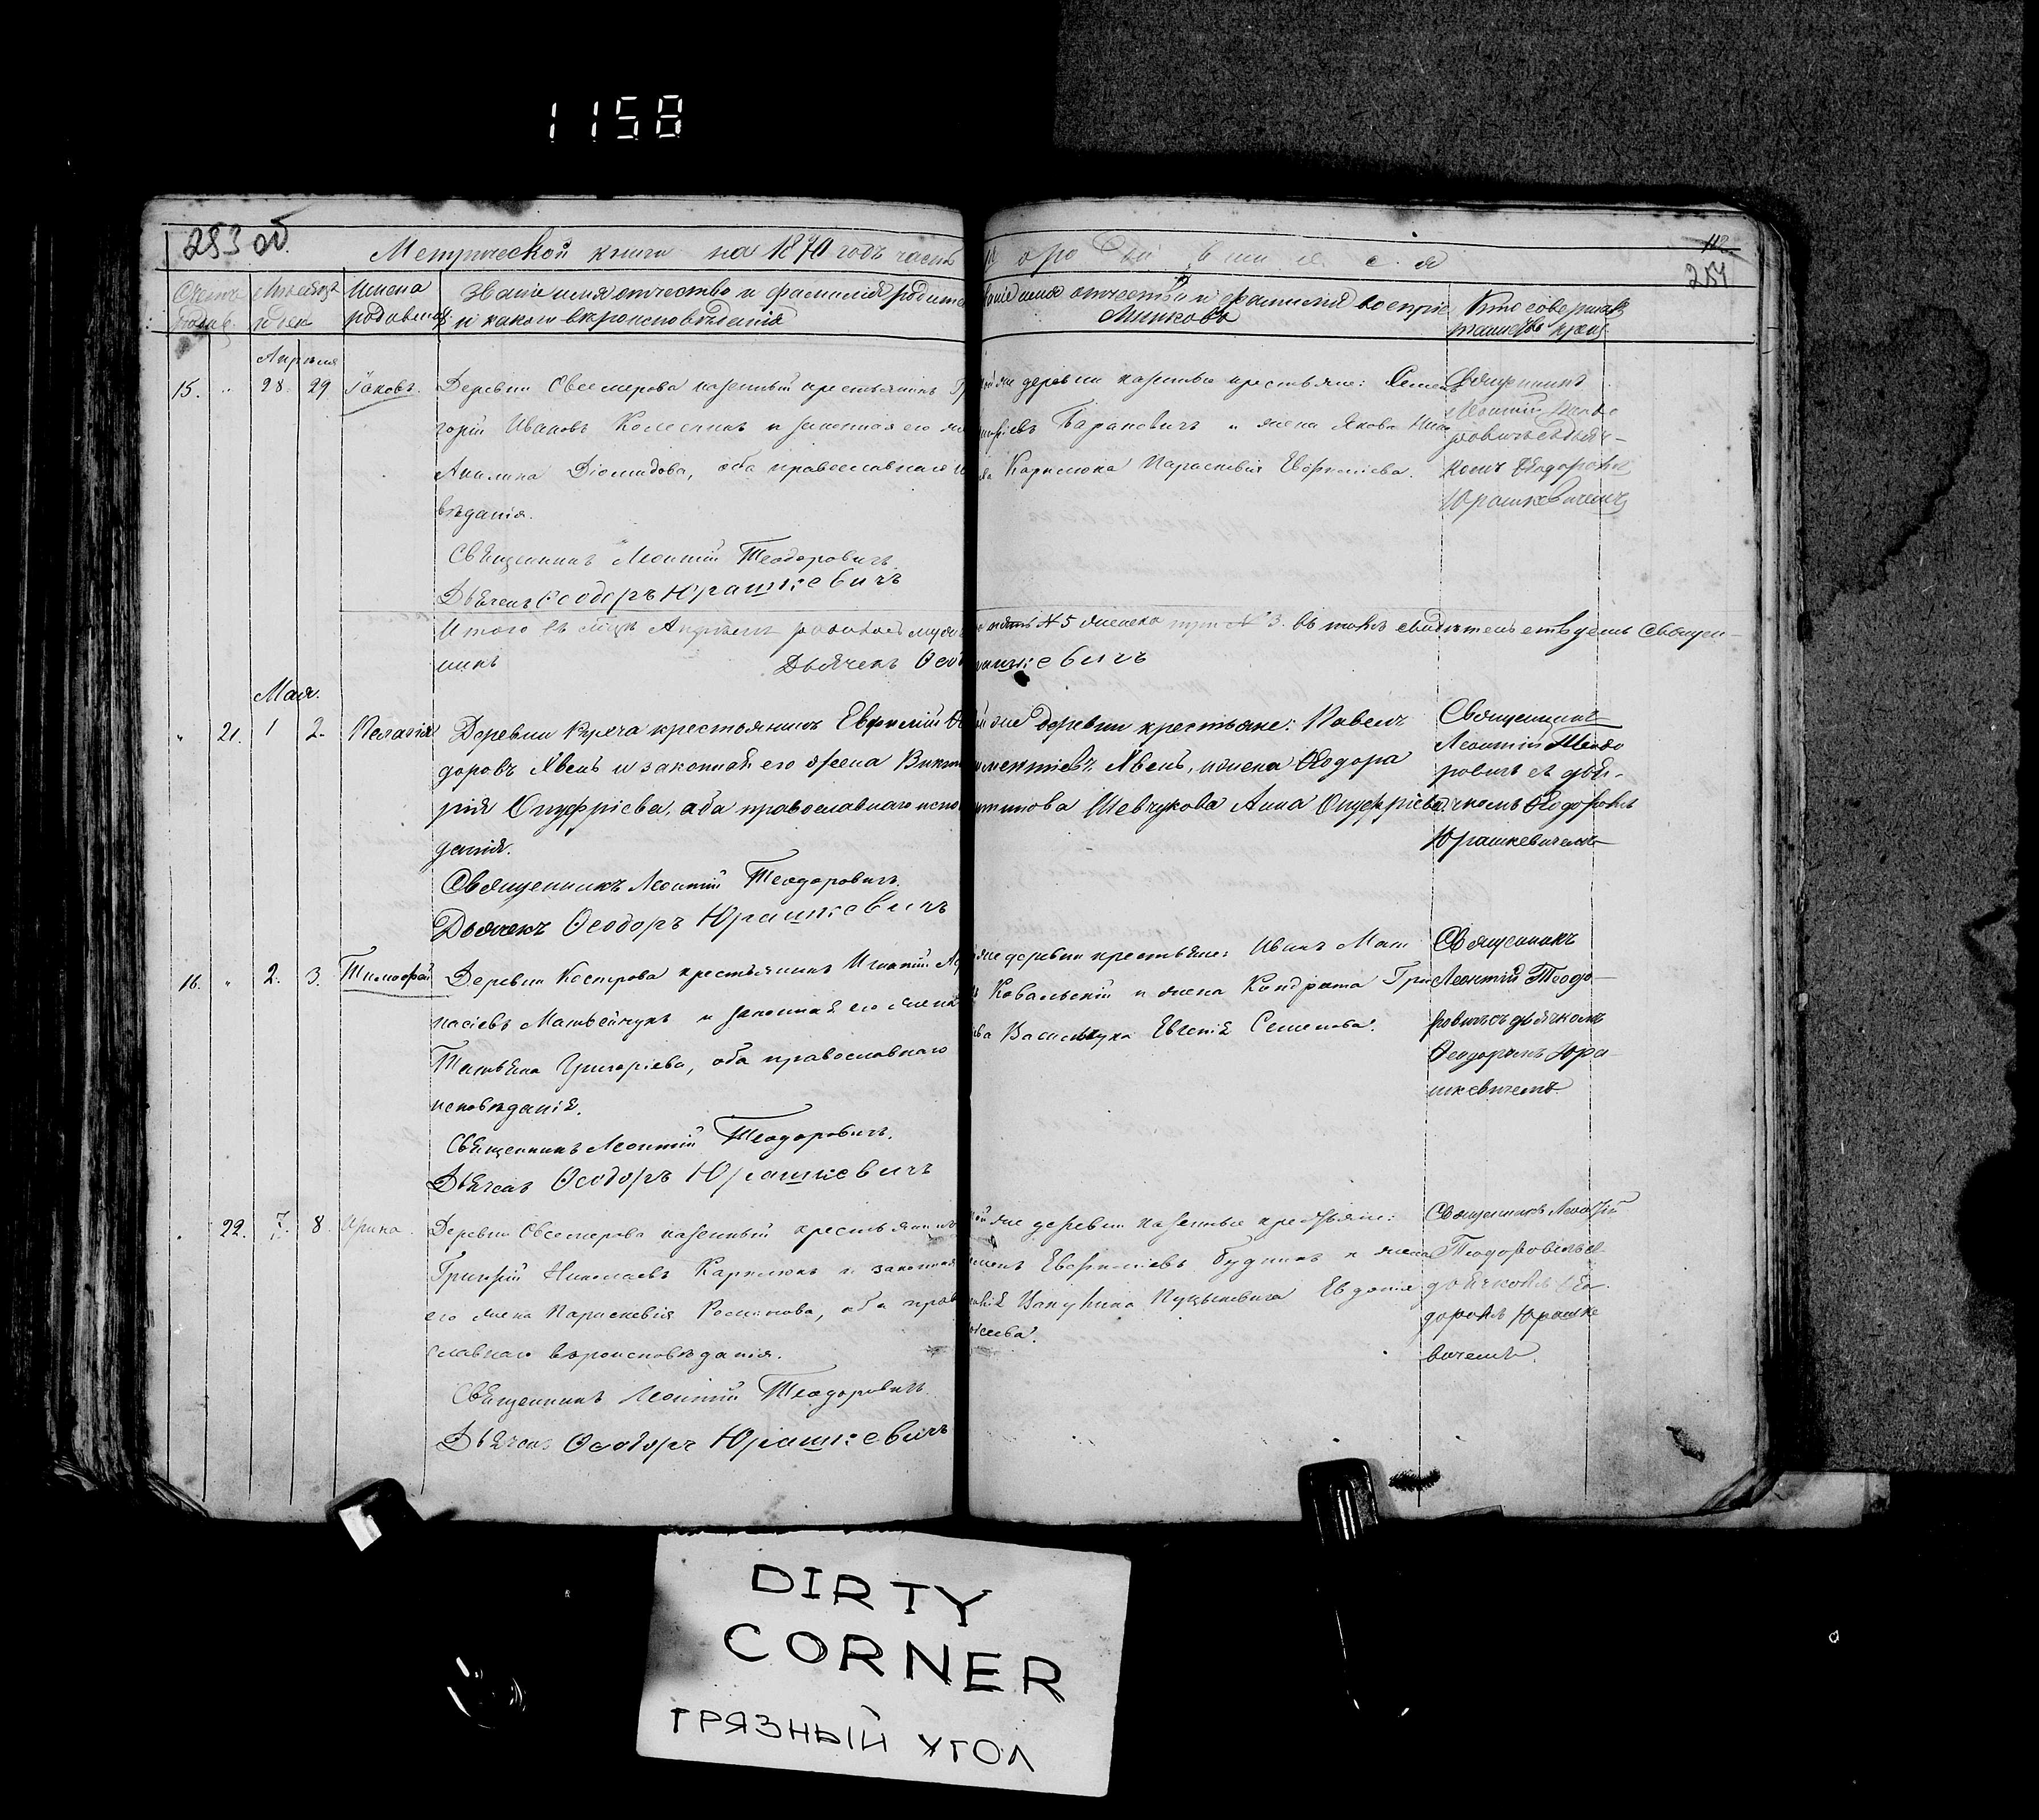 1158
283 об.
Метрической книги на 1870 годъ часть
о родившихся
112
254
Имена
родившихся
Званіе имя отчество и фамилія
и какого вѣроисповѣданія
имя отчество и фамилія воспріе
мниковъ
Кто совершалъ
таинство крещ.
Апрѣля
15. " 28. 29 Іаковъ.
Деревни Овсемерова казенный крестьянинъ Гри
горій Ивановъ Колесникъ и законная его же
Акилина Діомидова, оба православнаго
вѣданія.
Священникъ Леонтій Теодоровичъ
Дьячекъ Ѳеодоръ Юрашкевичъ
же деревни казенные крестьяне: Семенъ
Барановичъ и жена Якова
Карпюка Параскевія Евфиміева.
Священникъ
Леонтій Теодо
ровичъ съ дьяч-
комъ Ѳеодоромъ
Юрашкевичемъ
Итого въ мцѣ Апрѣлѣ родилось
N 5 женска N 3. въ томъ свидѣтельствуемъ Священ-
никъ Дьячекъ Ѳеодоръ Юрашкевичъ
Мая.
" 21. 1 2. Пелагія
Деревни крестьянинъ Евфимій Ѳео
доровъ Явенъ и законная его жена Викто
рія Онуфріева, оба православнаго испо
данія.
Священникъ Леонтій Теодоровичъ.
Дьячекъ Ѳеодоръ Юрашкевичъ
же деревни крестьяне: Павелъ
Явенъ, и жена Ѳеодора
Шевчукова Анна Онуфріева.
Священникъ
Леонтій Теодо
ровичъ съ дья-
чкомъ Ѳеодоромъ
Юрашкевичемъ
16. " 2. 3. Тимофей
Деревни Кострова крестьянинъ Игнатій Аѳа
насіевъ Матвейчукъ и законная его жена
Татьяна Григоріева, оба православнаго
исповѣданія.
Священникъ Леонтій Теодоровичъ.
Дьячекъ Ѳеодоръ Юрашкевичъ
же деревни крестьяне: Иванъ
Ковальскій и жена Кондрата Гри
Васильчука Евгенія Семенова.
Священникъ
Леонтій Теодо-
ровичъ съ дьячкомъ
Ѳеодоромъ Юра-
шкевичемъ
" 22. 7. 8. Ирина.
Деревни Овсемерова казенный крестьянинъ
Григорій Николаевъ Карпюкъ и законная
его жена Параскевія оба право
славнаго вѣроисповѣданія.
Священникъ Леонтій Теодоровичъ.
Дьячекъ Ѳеодоръ Юрашкевичъ
же деревни казенные крестьяне:
Евфиміевъ Будникъ и жена
Евдокія
Священникъ Леонтій
Теодоровичъ съ
дьячкомъ Ѳео-
доромъ Юрашке
вичемъ.
DIRTY
CORNER
ГРЯЗНЫЙ УГОЛ